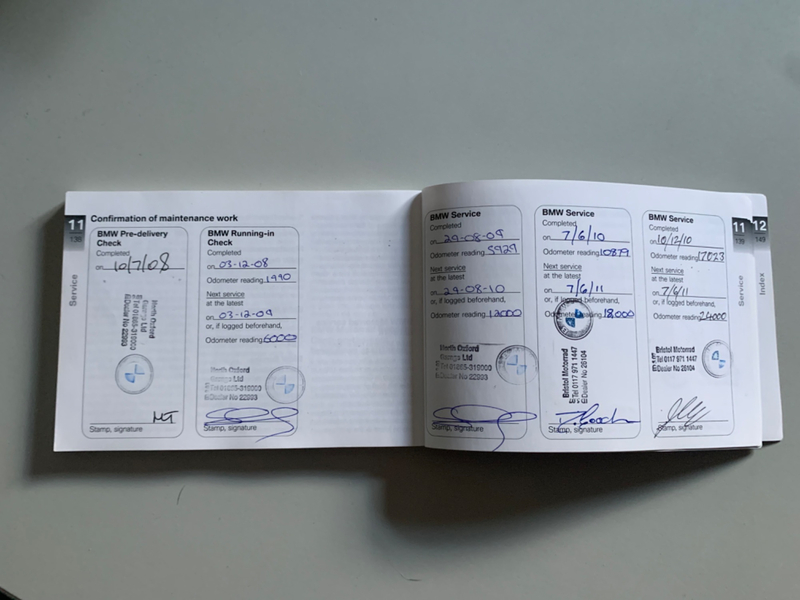 11
139
Service
Confirmation of maintenance work
BMW Pre-delivery
Check
Completed
on 10/7/08
North Oxford
Garage Ltd
Tel 01865-319000
Dealer No 22903
MJ
Stamp, signature
BMW Running-in
Check
Completed
on 03-12-08
Odometer reading 1490
Next service
at the latest
on 03-12-09
or, if logged beforehand,
Odometer reading 6000
North Oxford
Garage Ltd
Tel 01865-319000
Dealer No 22903
Stamp, signature
BMW Service
Completed
on 29-08-09
Odometer reading 5929
Next service
at the latest
on 29-08-10
or, if logged beforehand,
Odometer reading 12000
North Oxford
Garage Ltd
Tel 01865-319000
Dealer No 22903
Stamp, signature
BMW Service
Completed
on 7/6/10
Odometer reading 10879
Next service
at the latest
on 7/6/11
or, if logged beforehand,
Odometer reading 18,000
Bristol Motorrad
Tel 0117 971 1447
Dealer No 26104
Stamp, signature
BMW Service
Completed
on 10/12/10
Odometer reading 17023
Next service
at the latest
on 7/6/11
or, if logged beforehand,
Odometer reading 24000
Bristol Motorrad
Tel 0117 971 1447
Dealer No 26104
Stamp, signature
11
139
Service
12
149
Index